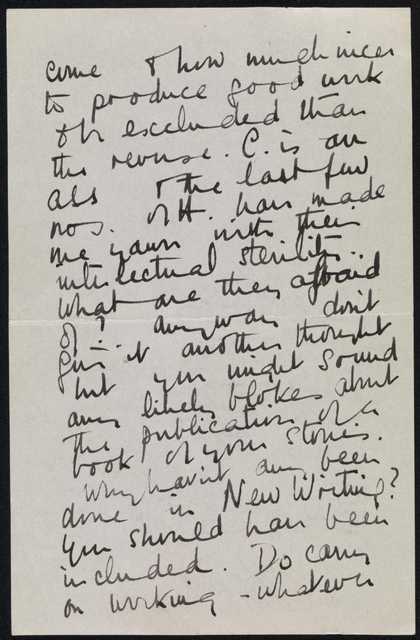 come & how much nicer
to produce good work
& be excluded than
the reverse. C. is an
ass & the last few
nos. of H. have made
me yawn with their
intellectual sterility..
what are they afraid
of? ... anyway don't
give it another thought
but you might sound
any likely blokes about
the publication of a
book of your stories.
Why havn't any been
done in New Writing?
you should have been
included. Do carry
on working - whatever